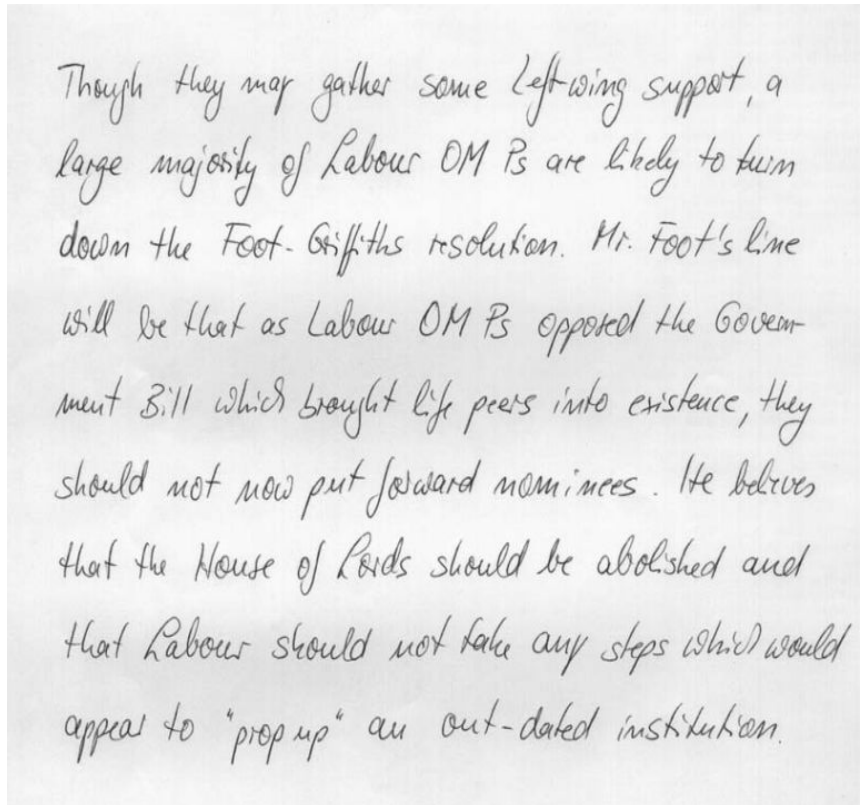 Though they may gather some Left wing support, a
large majority of Labour OM Ps are likely to turn
down the Foot-Griffiths resolution. Mr. Foot's line
will be that as Labour OM Ps opposed the Govern-
ment Bill which brought life peers into existence, they
should not now put forward nominees. He believes
that the House of Lords should be abolished and
that Labour should not take any steps which would
appear to "prop up" an out-dated institution.